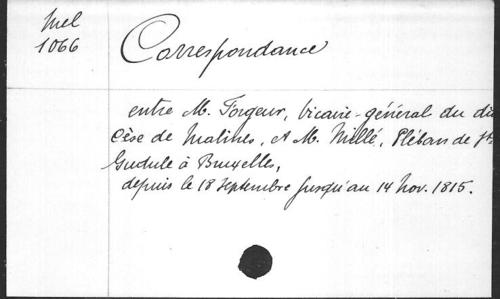 Mel
1066
Correspondance
entre M. Forgeur, Vicaire-général du dio
cèse de Malines, et M. Millé, Pléban de Ste
Gudule à Bruxelles,
depuis le 18 septembre jusqu'au 14 Nov. 1815.